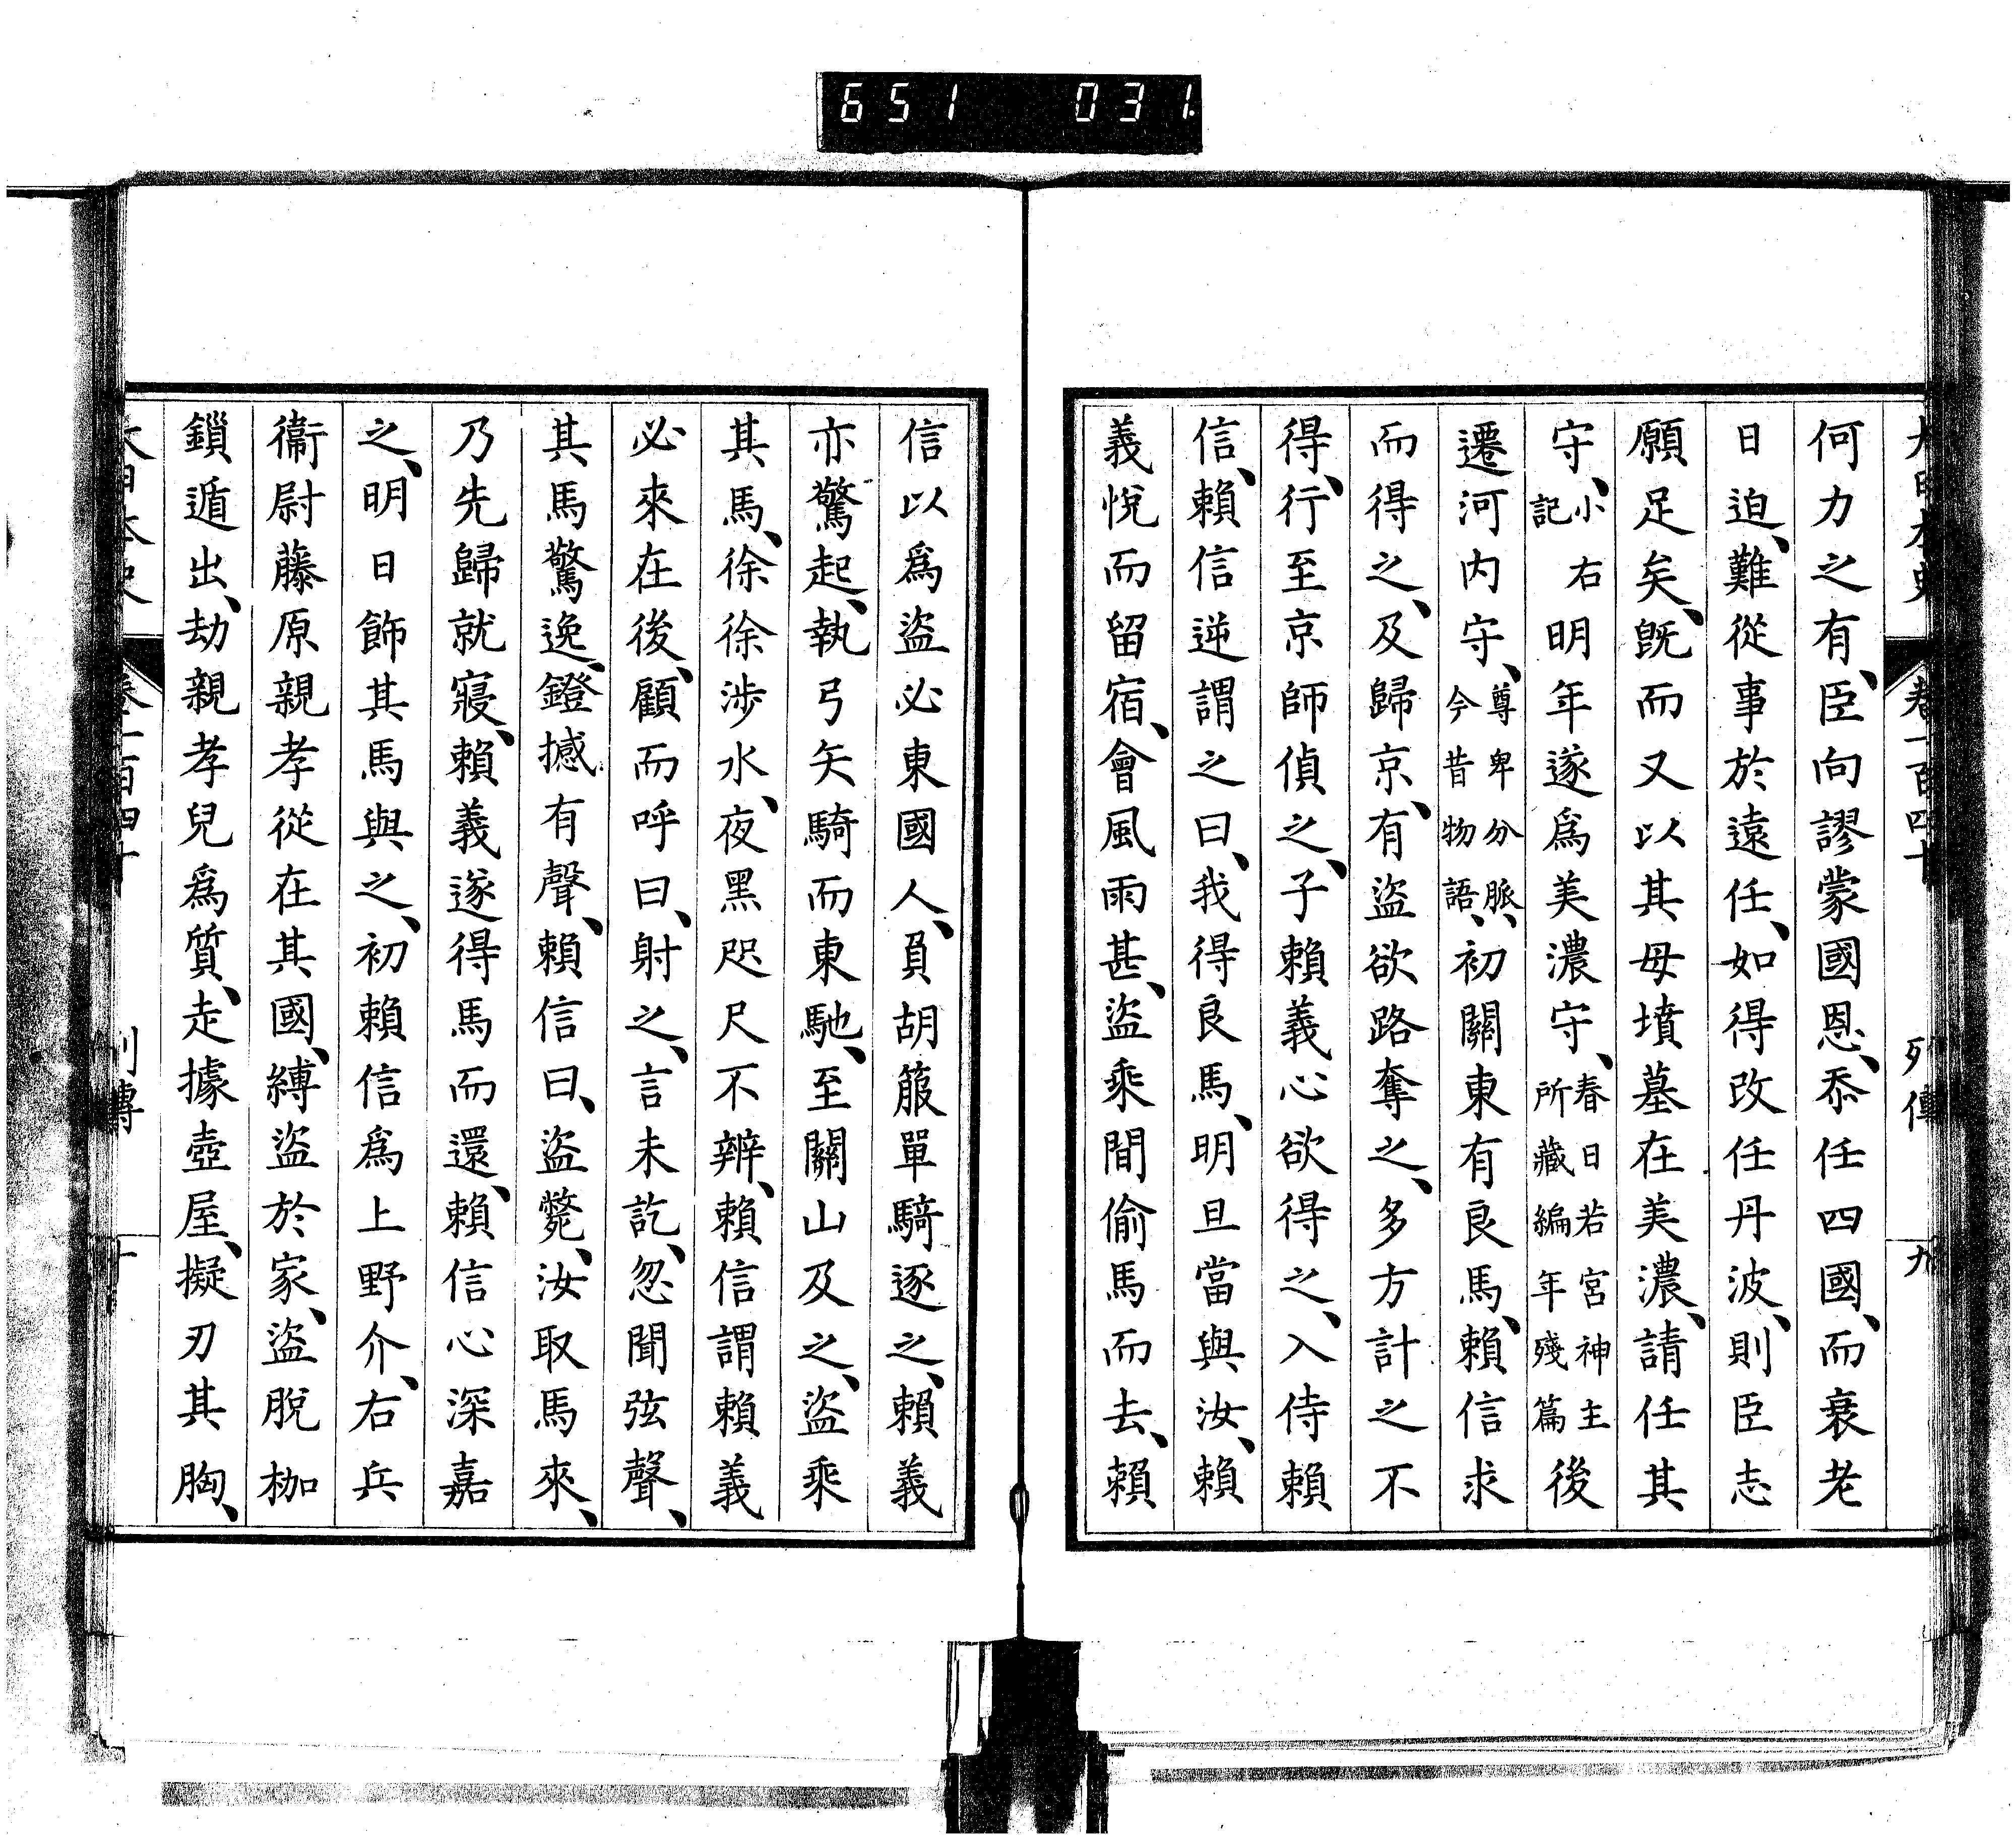 651 031
大日本史 卷一百四十 列傳 九
何力之有、臣向謬蒙國恩、忝任四國、而衰老
日迫、難從事於遠任、如得改任丹波、則臣志
願足矣、既而又以其母墳墓在美濃、請任其
守、小右記 明年遂爲美濃守、春日若宮神主所藏編年殘篇 後
遷河内守、尊卑分脈、今昔物語、初關東有良馬、賴信求
而得之、及歸京、有盜欲路奪之、多方計之不
得、行至京師偵之、子賴義心欲得之、入侍賴
信、賴信逆謂之曰、我得良馬、明旦當與汝、賴
義悅而留宿、會風雨甚、盜乘間偷馬而去、賴
信以爲盜必東國人、負胡簶單騎逐之、賴義
亦驚起、執弓矢騎而東馳、至關山及之、盜乘
其馬、徐徐涉水、夜黑咫尺不辨、賴信謂賴義
必來在後、顧而呼曰、射之、言未訖、忽聞弦聲、
其馬驚逸、鐙撼有聲、賴信曰、盜斃、汝取馬來、
乃先歸就寢、賴義遂得馬而還、賴信心深嘉
之、明日飾其馬與之、初賴信爲上野介、右兵
衞尉藤原親孝從在其國、縛盜於家、盜脫枷
鎖遁出、劫親孝兒爲質、走據壺屋、擬刃其胸、
大日本史 卷一百四十 列傳 十